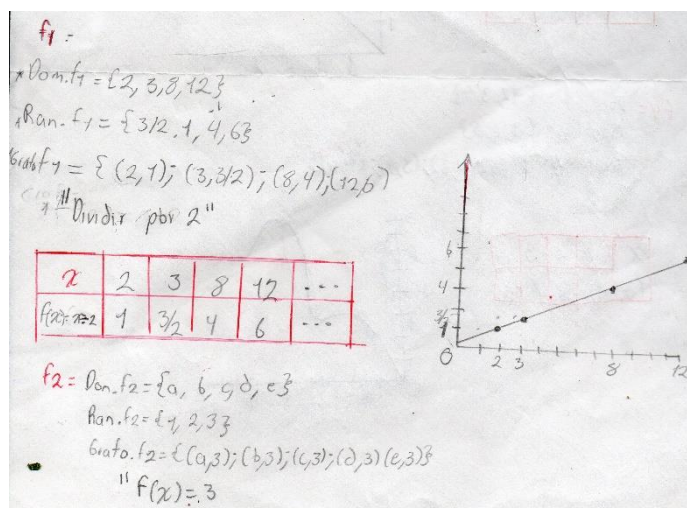 f1 =
* Dom.f1 = {2, 3, 8, 12}
* Ran. f1 = { 3/2, 1, 4, 6}
Grafo f1 = { (2,1); (3,3/2); (8,4);(12,6)
* "Dividir por 2"
x 2 3 8 12 ...
f(x)= x÷2 1 3/2 4 6 ...
6
4
3/2
1
0 2 3 8 12
f2 = Dom.f2 = {a, b, c, d, e}
Ran.f2 = {1, 2, 3}
Grafo.f2 = {(a,3);(b,3);(c,3);(d,3)(e,3)}
" f(x) = 3